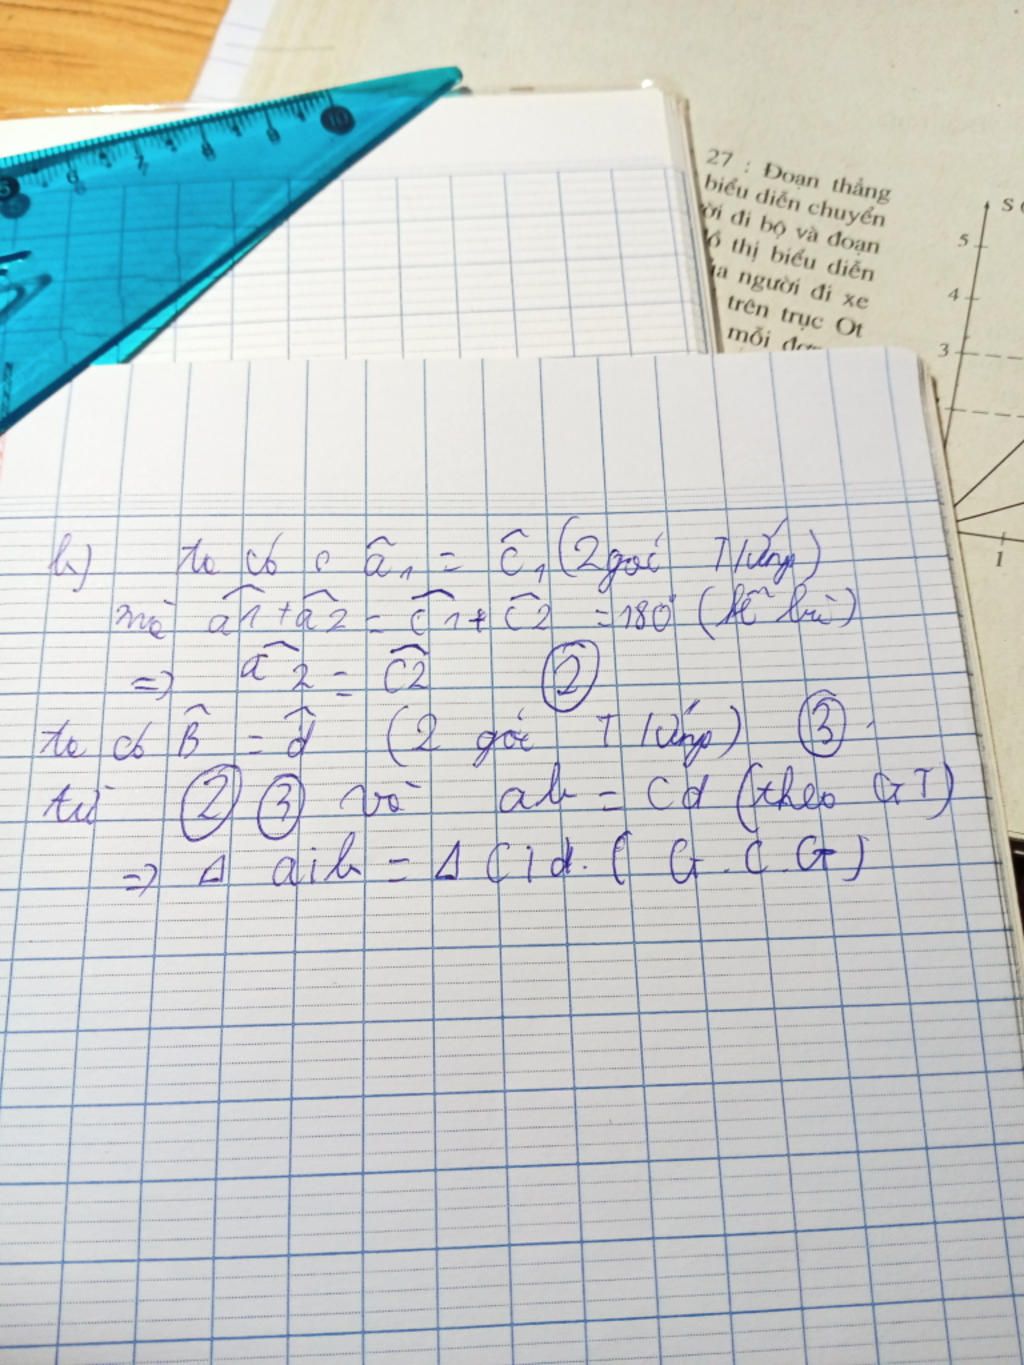 10
9
8
7
6
5
27 : Đoạn thẳng
biểu diễn chuyển
ời đi bộ và đoạn
ồ thị biểu diễn
ủa người đi xe
trên trục Ot
mỗi đơn
S
5
4
3
1
b) ta có : â1 = ĉ1 (2 góc T Ứng)
mà â1 + â2 = ĉ1 + ĉ2 = 180° (kề bù)
=> â2 = ĉ2 ②
ta có B̂ = d̂ (2 góc T Ứng) ③
từ ② ③ và ab = cd (theo GT)
=> Δ aib = Δ Cid. ( G.C.G)